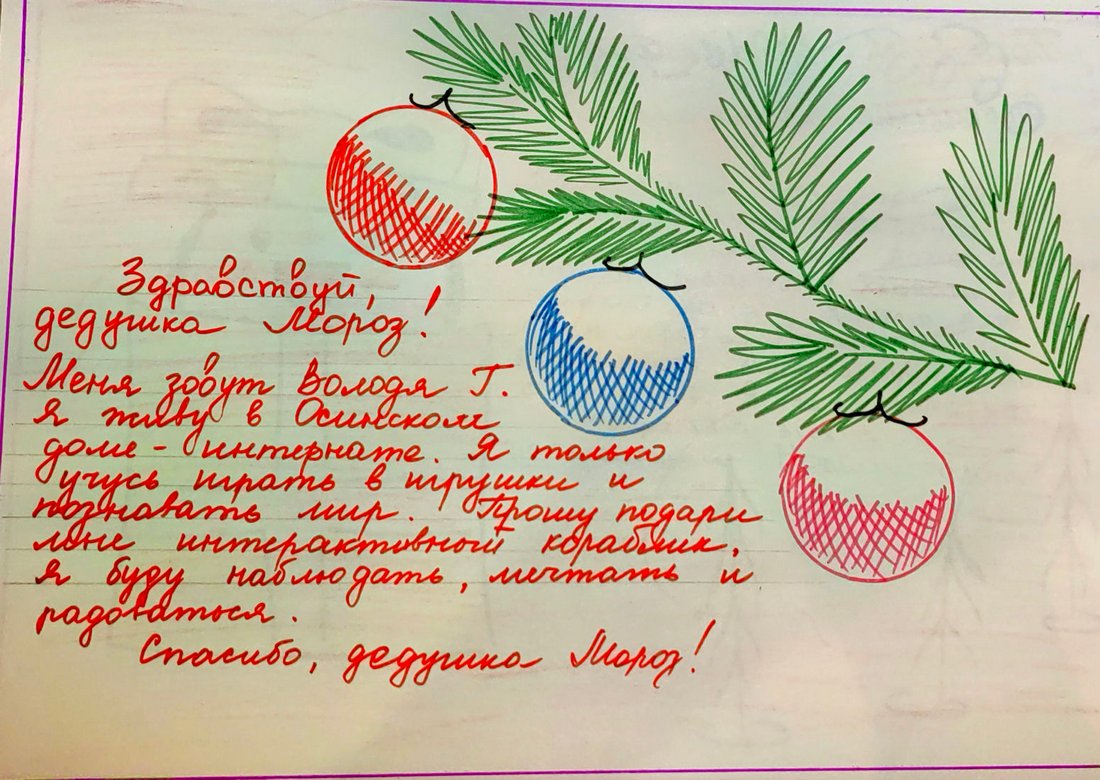 Здравствуй,
дедушка Мороз!
Меня зовут Володя Г.
Я живу в Осинском
доме - интернате. Я только
учусь играть в игрушки и
познавать мир. Прошу подари
мне интерактивный кораблик,
я буду наблюдать, мечтать и
радоваться.
Спасибо, дедушка Мороз!